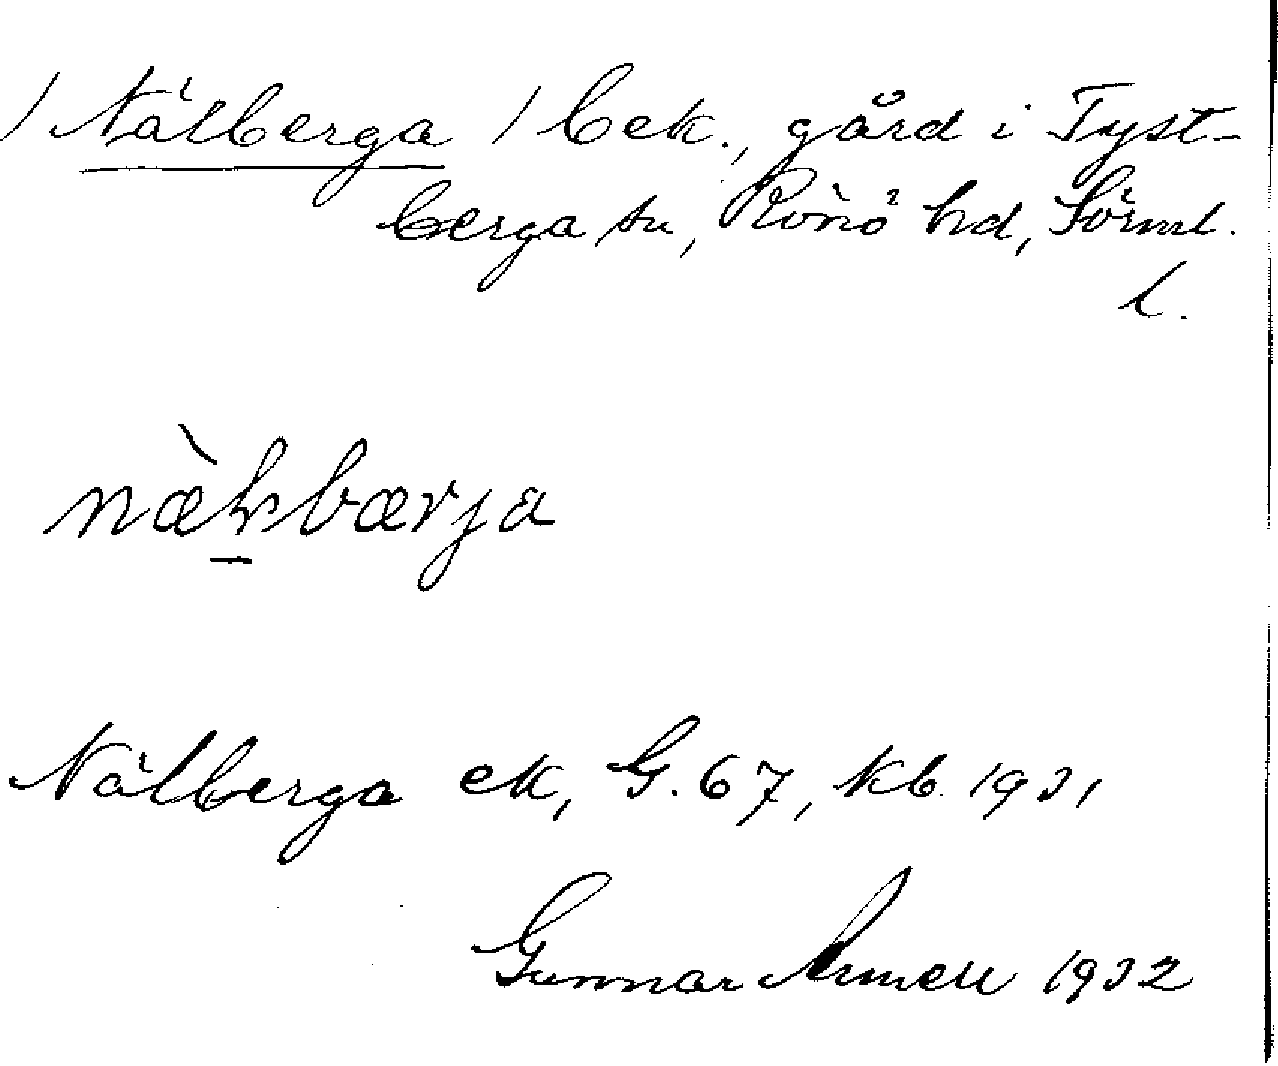 / Nälberga / bek., gård i Tyst-
berga sn, Rönö hd, Sörml.
l.
næ̀lbærja
Nälberga ek, G. 67, kb. 1931
Gunnar Armell 1932